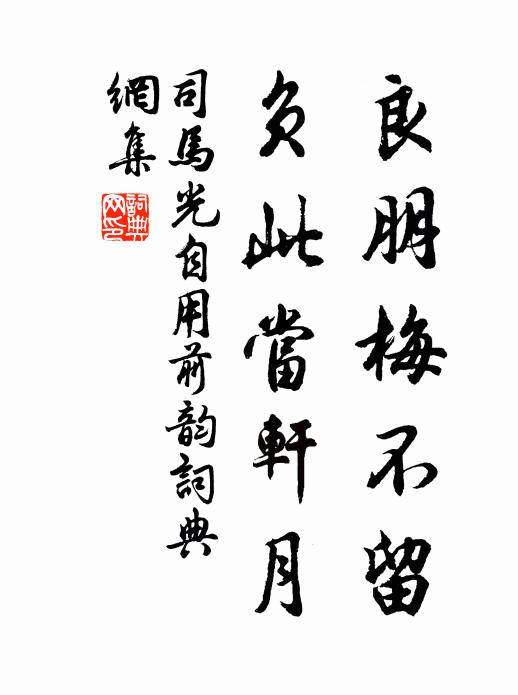 良朋梅不留
负此當軒月
司馬光自用前韵詞典
網集
詞典
网印